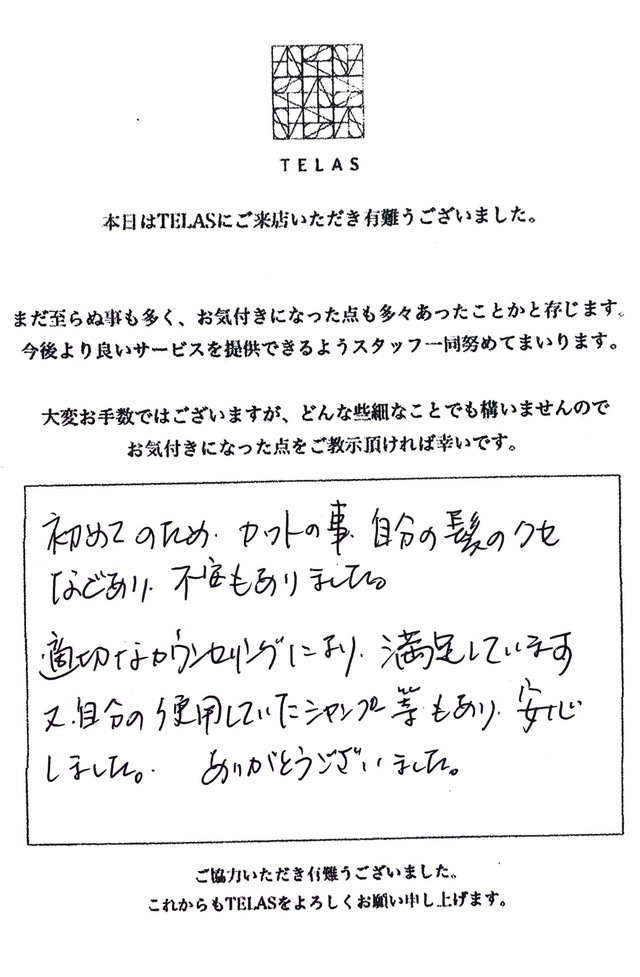 TELAS
本日はTELASにご来店いただき有難うございました。
まだ至らぬ事も多く、お気付きになった点も多々あったことかと存じます。
今後より良いサービスを提供できるようスタッフ一同努めてまいります。
大変お手数ではございますが、どんな些細なことでも構いませんので
お気付きになった点をご教示頂ければ幸いです。
初めてのため、カットの事、自分の髪のクセ
などあり、不安もありました。
適切なカウンセリングにより、満足しています
又、自分の使用していたシャンプー等もあり、安心
しました。 ありがとうございました。
ご協力いただき有難うございました。
これからもTELASをよろしくお願い申し上げます。